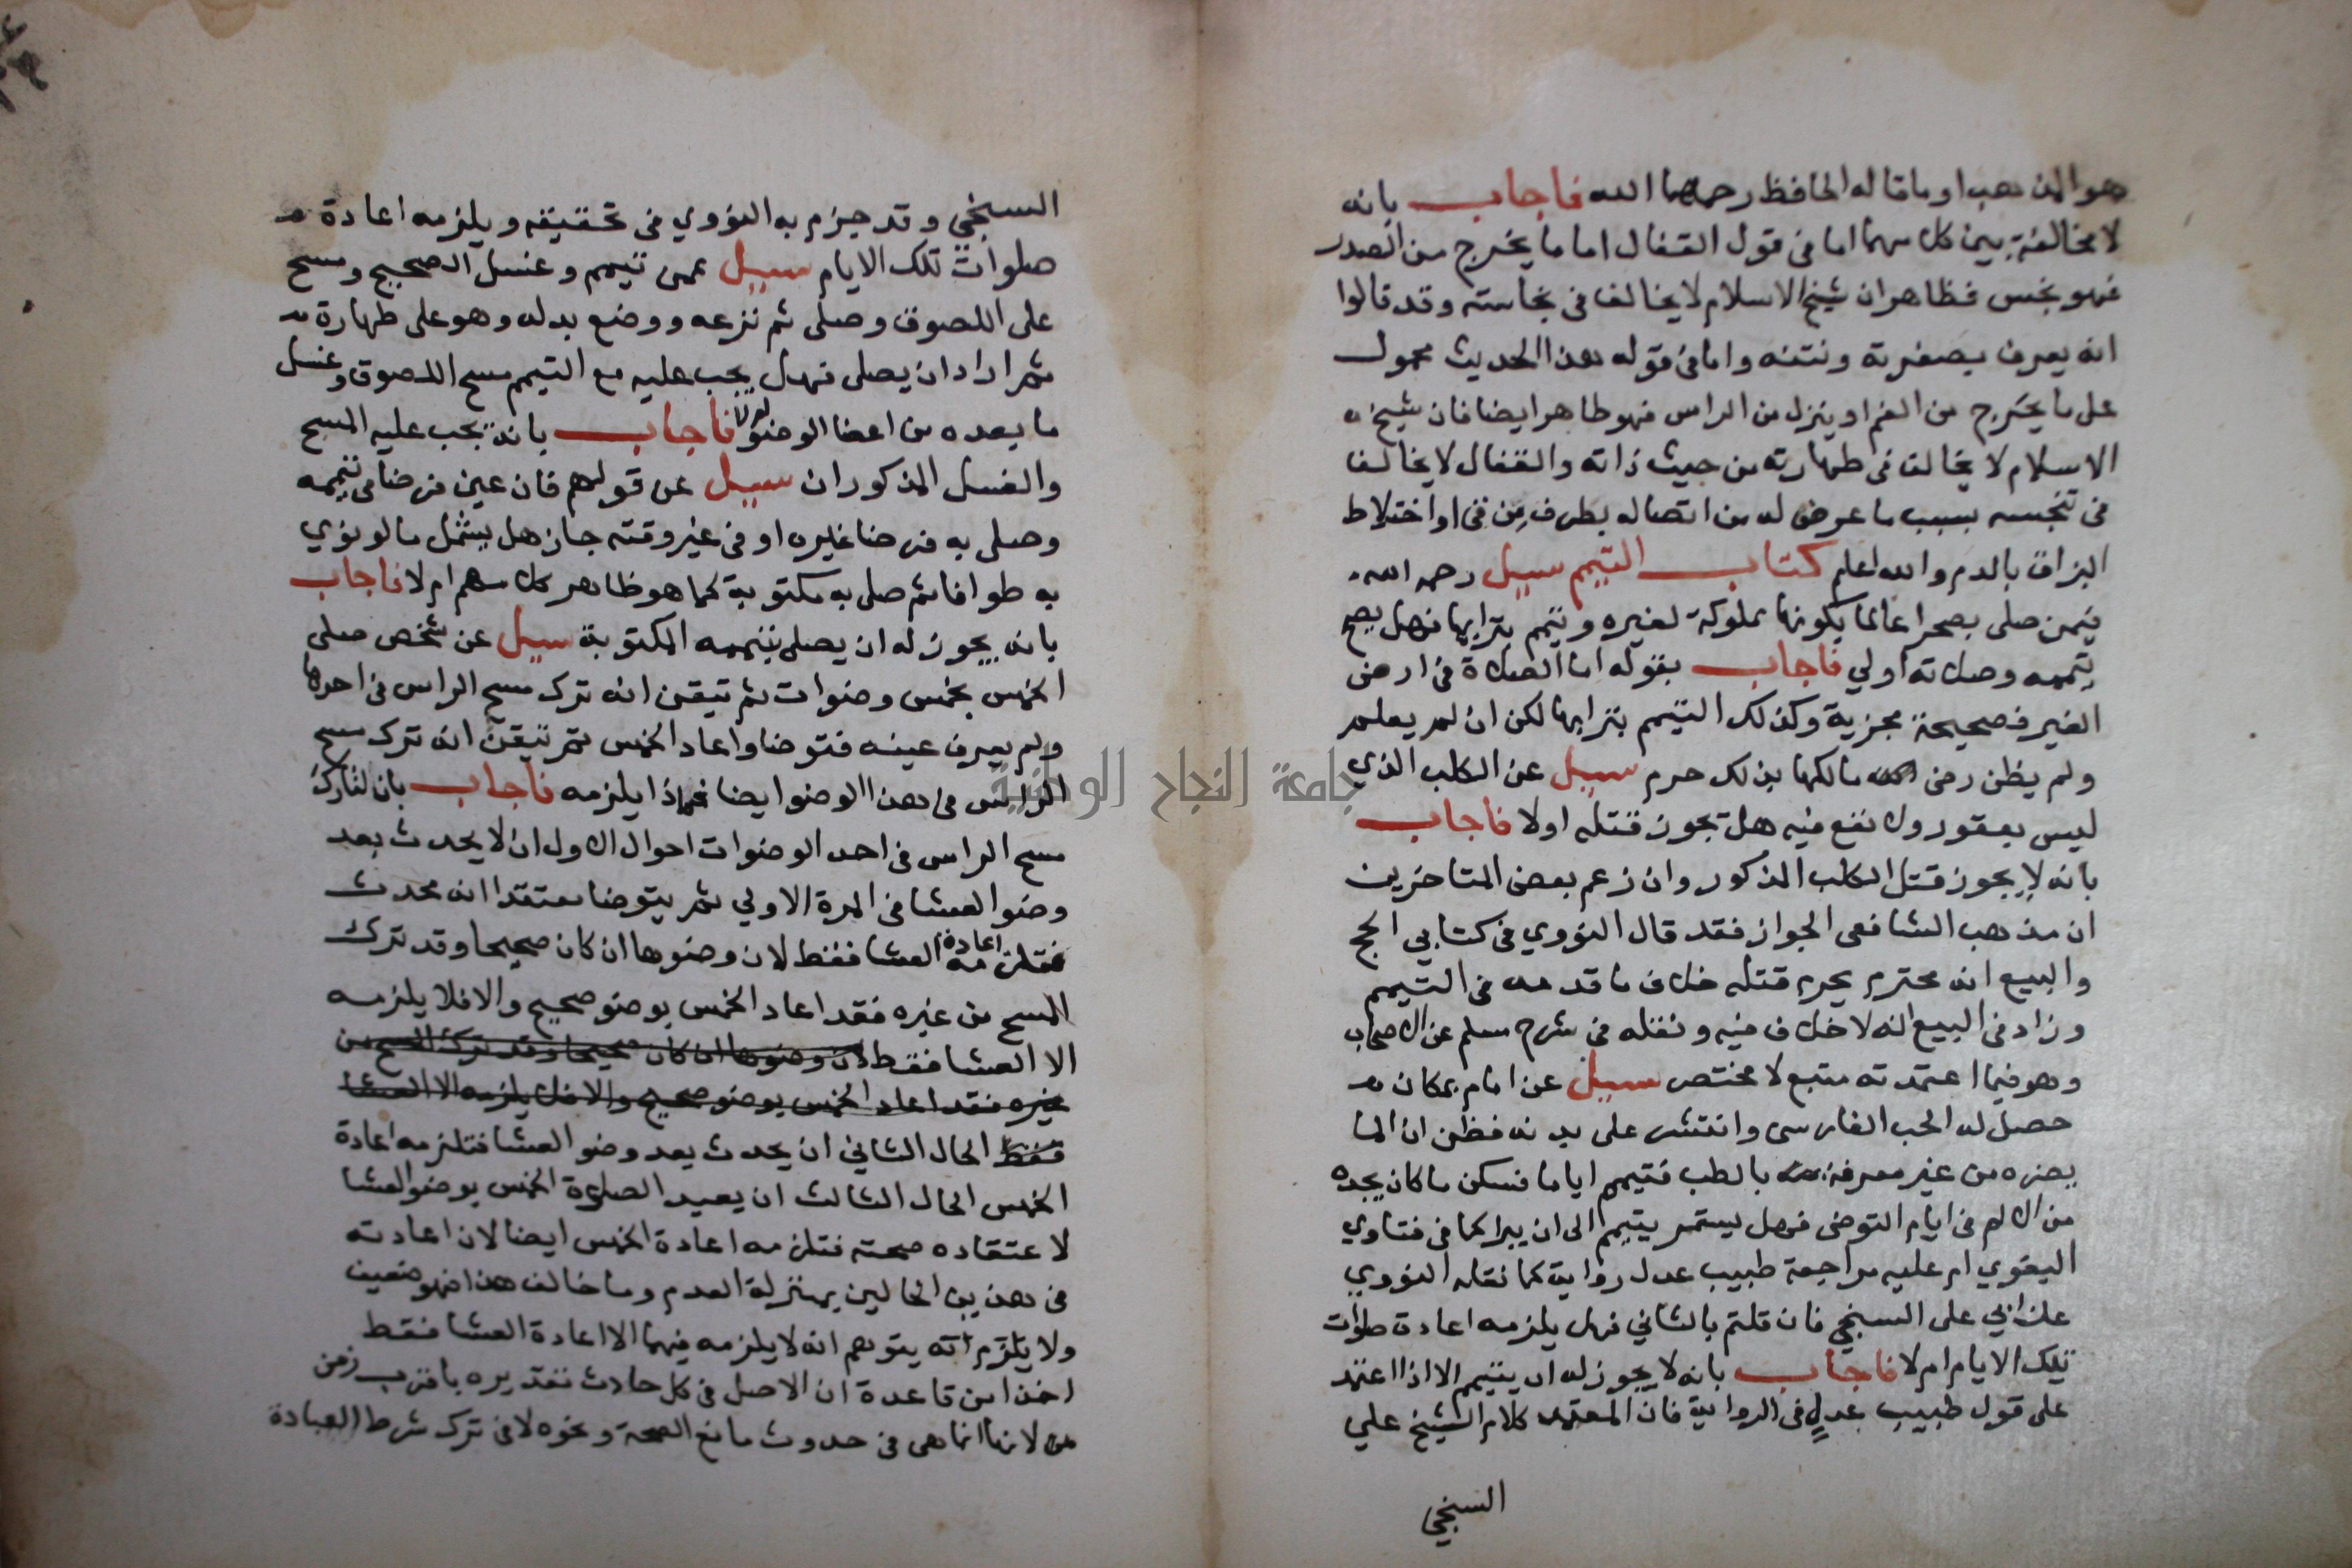 هو المذهب او ما قاله الحافظ رحمهما الله فاجاب بانه
لا مخالفة بين كل منهما اما في قول القفال اما ما يخرج من الصدر
فهو نجس فظاهر ان شيخ الاسلام لا يخالف في نجاسته وقد قالوا
انه يعرف بصفرته ونتنه واما في قوله هذا الحديث محمول
على ما يخرج من الفم او ينزل من الراس فهو طاهر ايضا فان شيخ
الاسلام لا يخالف في طهارته من حيث ذاته والقفال لا يخالف
في تنجسه بسبب ما عرض له من اتصاله بطرف من قئ او اختلاط
البزاق بالدم والله اعلم كتاب التيمم سيل رحمه الله
فيمن صلى بصحرا عالما بكونها مملوكة لغيره وتيمم بترابها فهل يصح
تيممه وصلاته اولي فاجاب بقوله اما الصلاة في ارض
الغير فصحيحة مجزية وكذلك التيمم بترابها لكن ان لم يعلم
ولم يظن رضى مالكها بذلك حرم سيل عن الكلب الذي
ليس بعقور ولا نفع فيه هل يجوز قتله اولا فاجاب
بانه لا يجوز قتل الكلب المذكور وان زعم بعض المتاخرين
ان مذهب الشافعي الجواز فقد قال النووي في كتابي الحج
والبيع انه محترم يحرم قتله خلاف ما قدمه في التيمم
وزاد في البيع انه لا خلاف فيه ونقله في شرح مسلم عن الاصحاب
وهو فيما اعتمدته متبع لا مختص سيل عن امام بمكان
حصل له الحب الفارسي وانتشر على بدنه فظن ان الما
يضره من غير معرفة بالطب فتيمم اياما فسكن ما كان يجده
من الالم في ايام التوضى فهل يستمر يتيمم الى ان يبرا كما في فتاوي
البغوي ام عليه مراجعة طبيب عدل رواية كما نقله النووي
عن ابي على السبخي فان قلتم بالثاني فهل يلزمه اعادة صلوات
تلك الايام ام لا فاجاب بانه لا يجوز له ان يتيمم الا اذا اعتمد
على قول طبيب عدل في الرواية فان المعتمد كلام الشيخ علي
السبخي
السبخي وقد جزم به النووي في تحقيقه ويلزمه اعادة
صلوات تلك الايام سيل عمن تيمم وغسل الصحيح ومسح
على اللصوق وصلى ثم نزعه ووضع بدله وهو على طهارة
ثم اراد ان يصلى فهل يجب عليه مع التيمم مسح اللصوق وغسل
ما بعده من اعضا الوضو اولا فاجاب بانه يجب عليه المسح
والغسل المذكوران سيل عن قولهم فان عين فرضا في تيممه
وصلى به فرضا غيره او في غير وقته جاز هل يشمل ما لو نوي
به طوافا ثم صلى به مكتوبة كما هو ظاهر كلامهم ام لا فاجاب
بانه يجوز له ان يصلى بتيممه المكتوبة سيل عن شخص صلى
الخمس بخمس وضوات ثم تيقن انه ترك مسح الراس في احدها
ولم يعرف عينه فتوضا واعاد الخمس ثم تيقن انه ترك مسح
الراس في هذا الوضوا ايضا فماذا يلزمه فاجاب بان لتارك
مسح الراس في احد الوضوات احوال الاول ان لا يحدث بعد
وضو العشا في المرة الاولي ثم يتوضا معتقدا انه محدث
فتلزمه اعادة العشا فقط لان وضوها ان كان صحيحا وقد ترك
المسح من غيره فقد اعاد الخمس بوضو صحيح والا فلا يلزمه
الا العشا فقط لان وضوها ان كان صحيحا وقد ترك المسح من
غيره فقد اعاد الخمس بوضو صحيح والا فلا يلزمه الا العشا
فقط الحال الثاني ان يحدث بعد وضو العشا فتلزمه اعادة
الخمس الحال الثالث ان يعيد الصلوة الخمس بوضو العشا
لاعتقاده صحته فتلزمه اعادة الخمس ايضا لان اعادته
في هذين الحالين بمنزلة العدم وما خالف هذا فهو ضعيف
ولا يلتزم انه يتوهم انه لا يلزمه فيهما الا اعادة العشا فقط
اخذا من قاعدة ان الاصل في كل حادث تقديره باقرب زمن
لانها انما هي في حدوث مانع الصحة ونحوه لا في ترك شرط العبادة
جامعة النجاح الوطنية